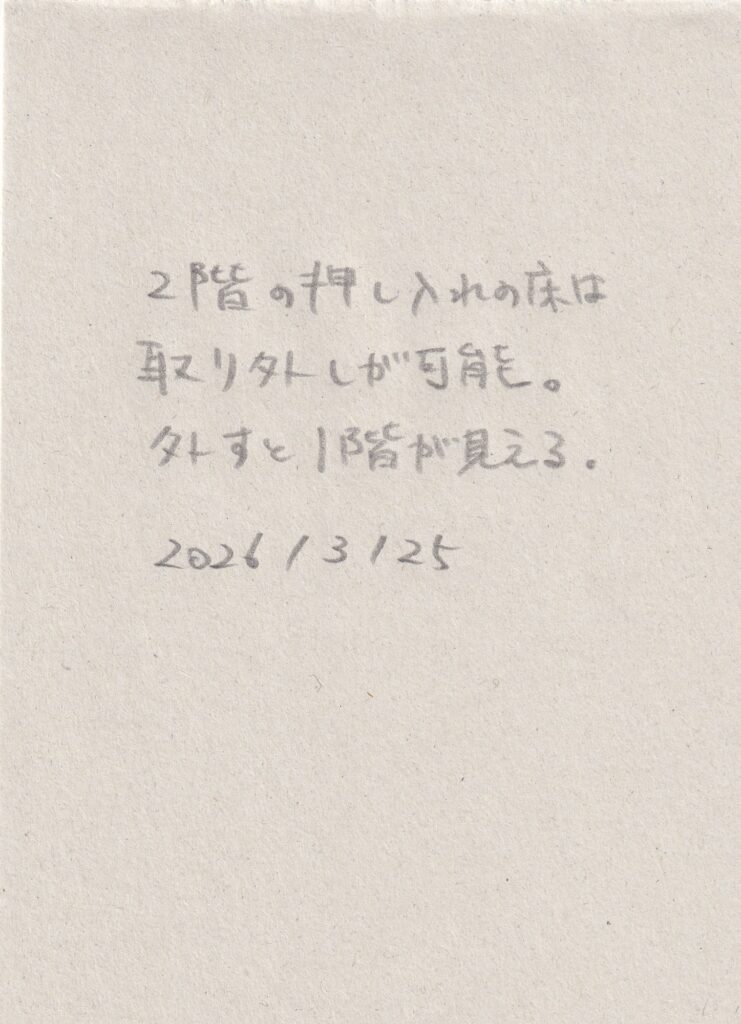 2階の押し入れの床は
取り外しが可能。
外すと1階が見える.
2026/3/25